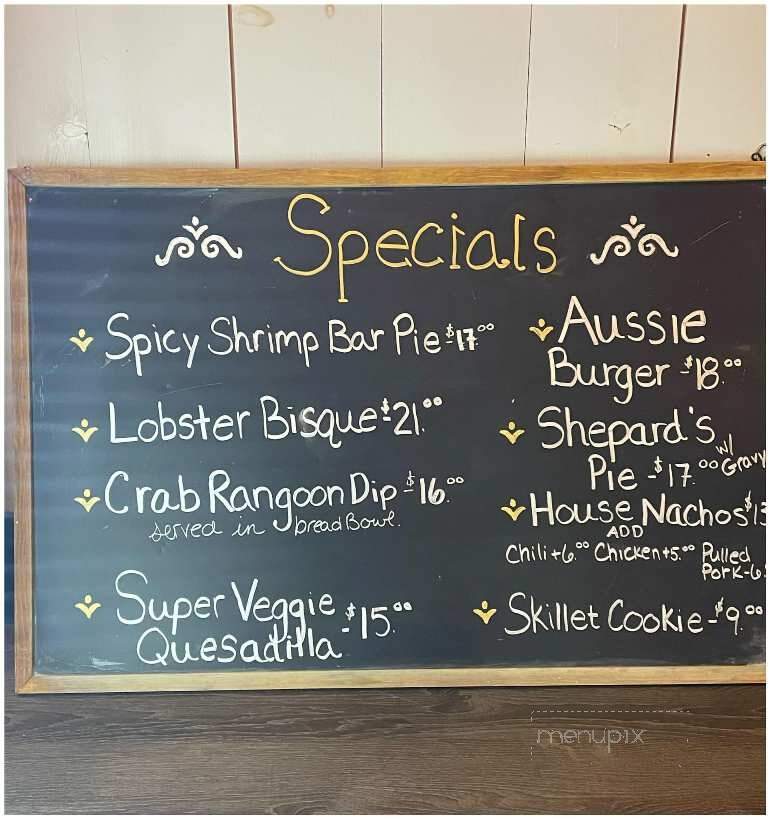 Specials
Spicy Shrimp Bar Pie-$17.00
Lobster Bisque-$21.00
Crab Rangoon Dip-$16.00
served in bread Bowl.
Super Veggie
Quesadilla-$15.00
Aussie
Burger-$18.00
Shepard's
Pie-$17.00 w/ Gravy
House Nachos
ADD
Chili+6.00 Chicken+5.00 Pulled
Pork-6
Skillet Cookie-$9.00
menupix